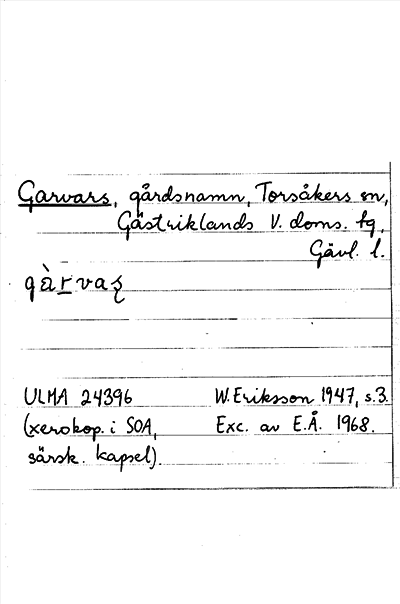 Garvars, gårdsnamn, Torsåkers sn,
Gästriklands V. doms. tg,
Gävl. l.
gàrvaș
ULMA 24396 W. Eriksson 1947, s. 3.
(xerokop. i SOA, Exc. av E.Å. 1968.
särsk. kapsel).